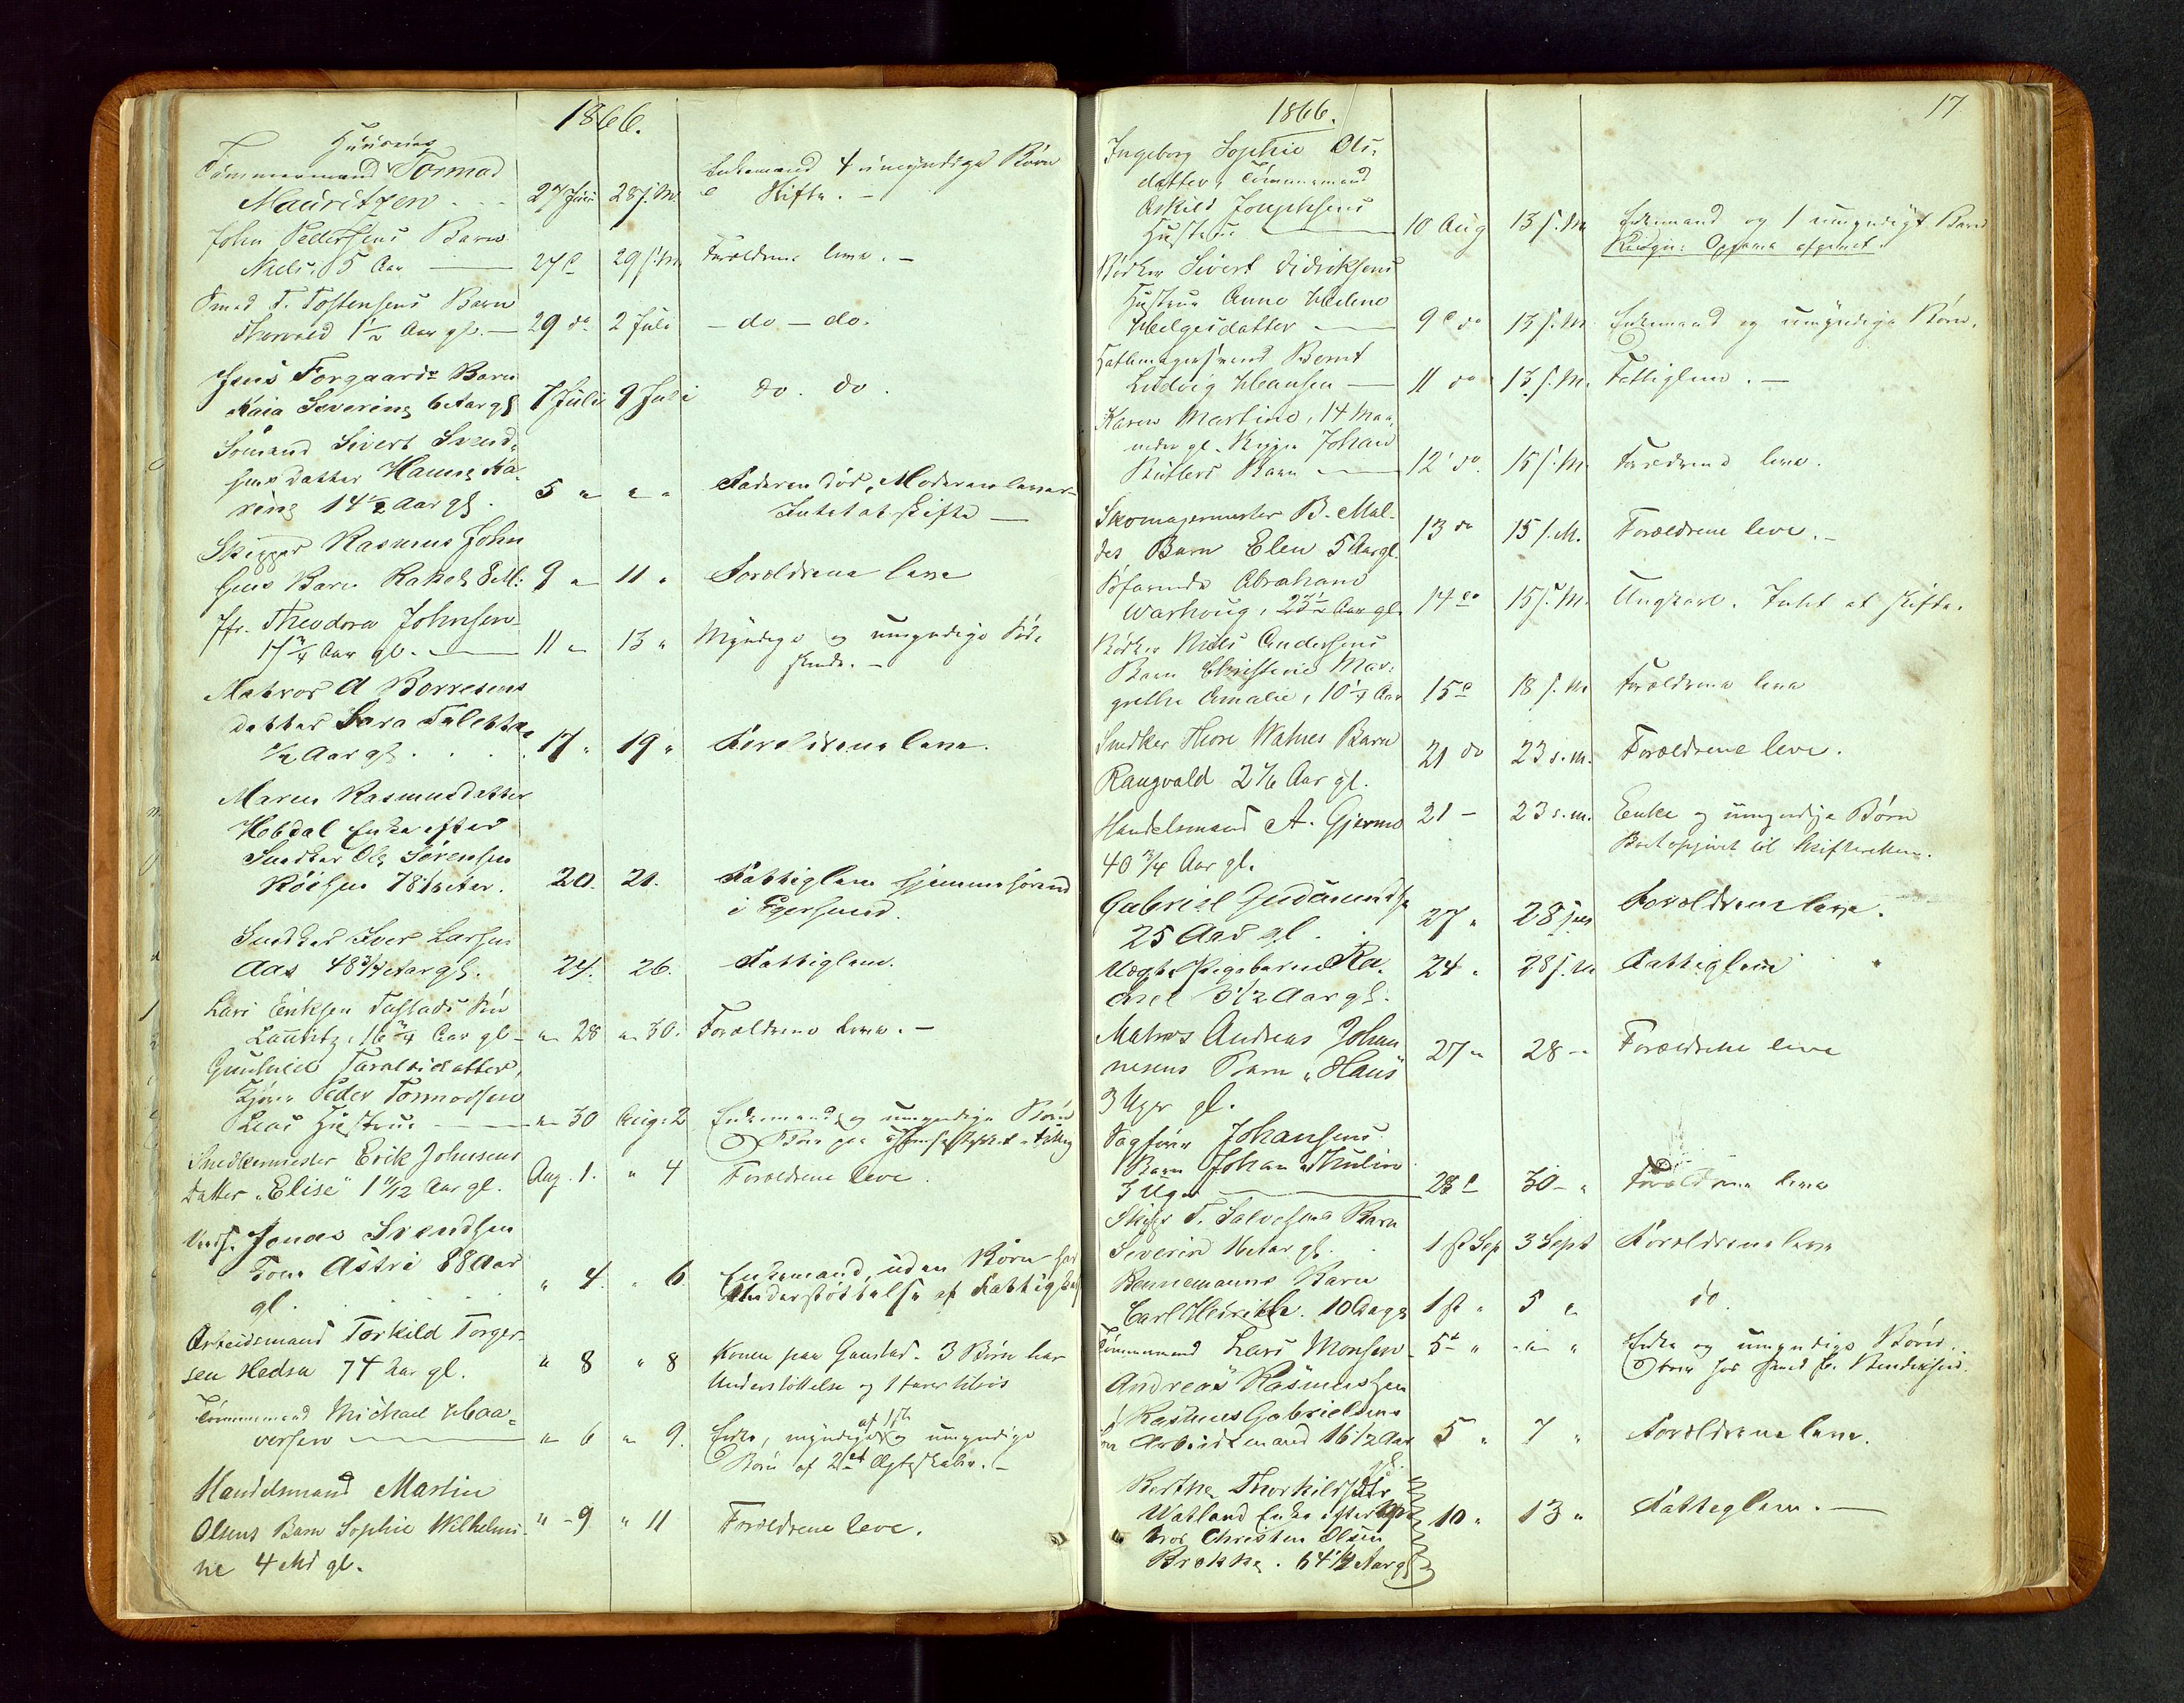 1866.
Huuseier
Tømmermand Tormod
Mauritzen 27 Juni 28 s.M. Enkemand 4 umyndige Børn
Skifte. -
John Pedersens Barn
Niels, 5 Aar 27 29 s.M. Forældrene leve. -
Smed T. Tostensens Barn
Thorvald 1 1/2 Aar gl. 29 do 2 Juli - do - do.
Jens Torgaards Barn
Kaia Severine 6 Aar gl 7 Juli 9 Juli do. do.
Sømand Sivert Svend-
sens datter Hanne Ka-
rine 14 1/2 Aar gl. 5 " " " Faderen død, Moderen lever
Intet at skifte
Skipper Rasmus John
sens Barn Rakel 8 M: 9 " 11 " Forældrene leve
Jfr. Theodora Johnsen
17 3/4 Aar gl. 11 " 13 " Myndige og umyndige Sød-
skende. -
Matros A Borresens
datter Sara Taletta
1/2 Aar gl. 17 " 19 " Forældrene leve.
Maren Rasmusdatter
Hobdal Enke efter
Snedker Ole Sørensen
78 Aar. 20. 21. Fattiglem hjemmehørend
i Egersund.
Snedker Iver Larsen
Aas 48 3/4 Aar gl. 24. 26. Fattiglem.
Lars Eriksen Tastads Søn
Lauritz, 16 3/4 Aar gl " 28 " 30. Forældrene leve. -
Gunhild Taraldsdatter,
Peder Tormodsen
Hustrue " 30 Aug: 2 Enkemand og umyndige Børn
Snedkermester Erik Johnsens
Datter "Elise" 1 11/12 Aar gl. Aug. 1. " 4 Forældrene leve.
Jonas Svendsen
Kone Astri 88 Aar
gl. " 4. " 6 Enkemand, uden Børn har
Understøttelse af Fattig
Arbeidsmand Torkild Torger-
sen Hedsa 74 Aar gl. " 8 " 8 Konen paa Gausdal. 3 Børn har
Understøttelse og
Tømmermand Michael Haa-
versen " 6 " 9. Enke, myndige af 1ste og umyndige
Børn af 2det Ægteskabe. -
Handelsmand Martin
Olsens Barn Sophie Wilhelmi-
ne 4 Md gl. " - 9 " 11 Forældrene leve.
17
1866.
Ingeborg Sophie Ols-
datter, Tømmermand
Askild Josephsens
Hustrue 10 Aug 13 s.M Enkemand og 1 umyndigt Barn
Bødker Sivert Didriksens
Hustrue Anne Helene
Helgesdatter 9 do 13 s.M Enkemand og umyndige Børn.
Hattemagersvend Bernt
Ludvig Hansen 11 do 13 s.M. Fattiglem. -
Karen Martine, 14 Maa-
neder gl. Skipper Johan
Barn 12 do. 15 s.M. Forældrene leve.
Skomagermester B. Mal-
des Barn Elen 5 Aar gl. 13 do 15 s.M. Forældrene leve. -
Søfarende Abraham
Warhoug, 23 1/2 Aar gl. 14 do 15 s.M. Ungkarl. Intet at skifte.
Bødker Niels Andersens
Barn Christine Mar-
grethe Amalie, 10 1/4 Aar 15 18 s.M Forældrene leve
Snedker Thore Watnes Barn
Rangvald 2 1/6 Aar gl. 21 do 23 s.m. Forældrene leve.
Handelsmand A. Gjermo 21 - 23 s.m. Enke og umyndige Børn
40 3/4 Aar gl. Boet opgivet til Skifteretten.
Gabriel Gudmunds
25 Aar gl. 27 " 28 Forældrene leve.
Pigebarnet Ra-
chel 3 1/2 Aar gl. 24 " 28 s.M Fattiglem
Matros Andreas Johan
nesens Barn "Hans" 27 " 28 - Forældrene leve
3 Uger gl.
Sagfører Johansens
Barn Johan Thulin
3 Uger 28 30 - " Forældrene leve
Skipper T. Salvesens Barn
Severin 16 Aar gl. 1st Sep 3 Sept Forældrene leve
Bennemanns Barn
Carl Henrik. 10 Dage 1st " 5 " do.
Tømmermand Lars Monsen 5 " - " - " Enke og umyndige Børn.
Andreas Rasmussen
Rasmus Gabrielsens
Arbeidsmand 16 1/2 Aar
gl. 5 " 7 " Forældrene leve.
Berthe Thorkildsdtr
Watland Enke efter
Christen Olsen
Brekke. 64 1/2 Aar gl 10 " 13 " Fattiglem. -